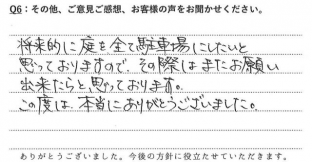 Q6：その他、ご意見ご感想、お客様の声をお聞かせください。
将来的に庭を全て駐車場にしたいと
思っておりますので、その際はまたお願い
出来たらと思っております。
この度は、本当にありがとうございました。
ありがとうございました。今後の方針に役立たせていただきます。